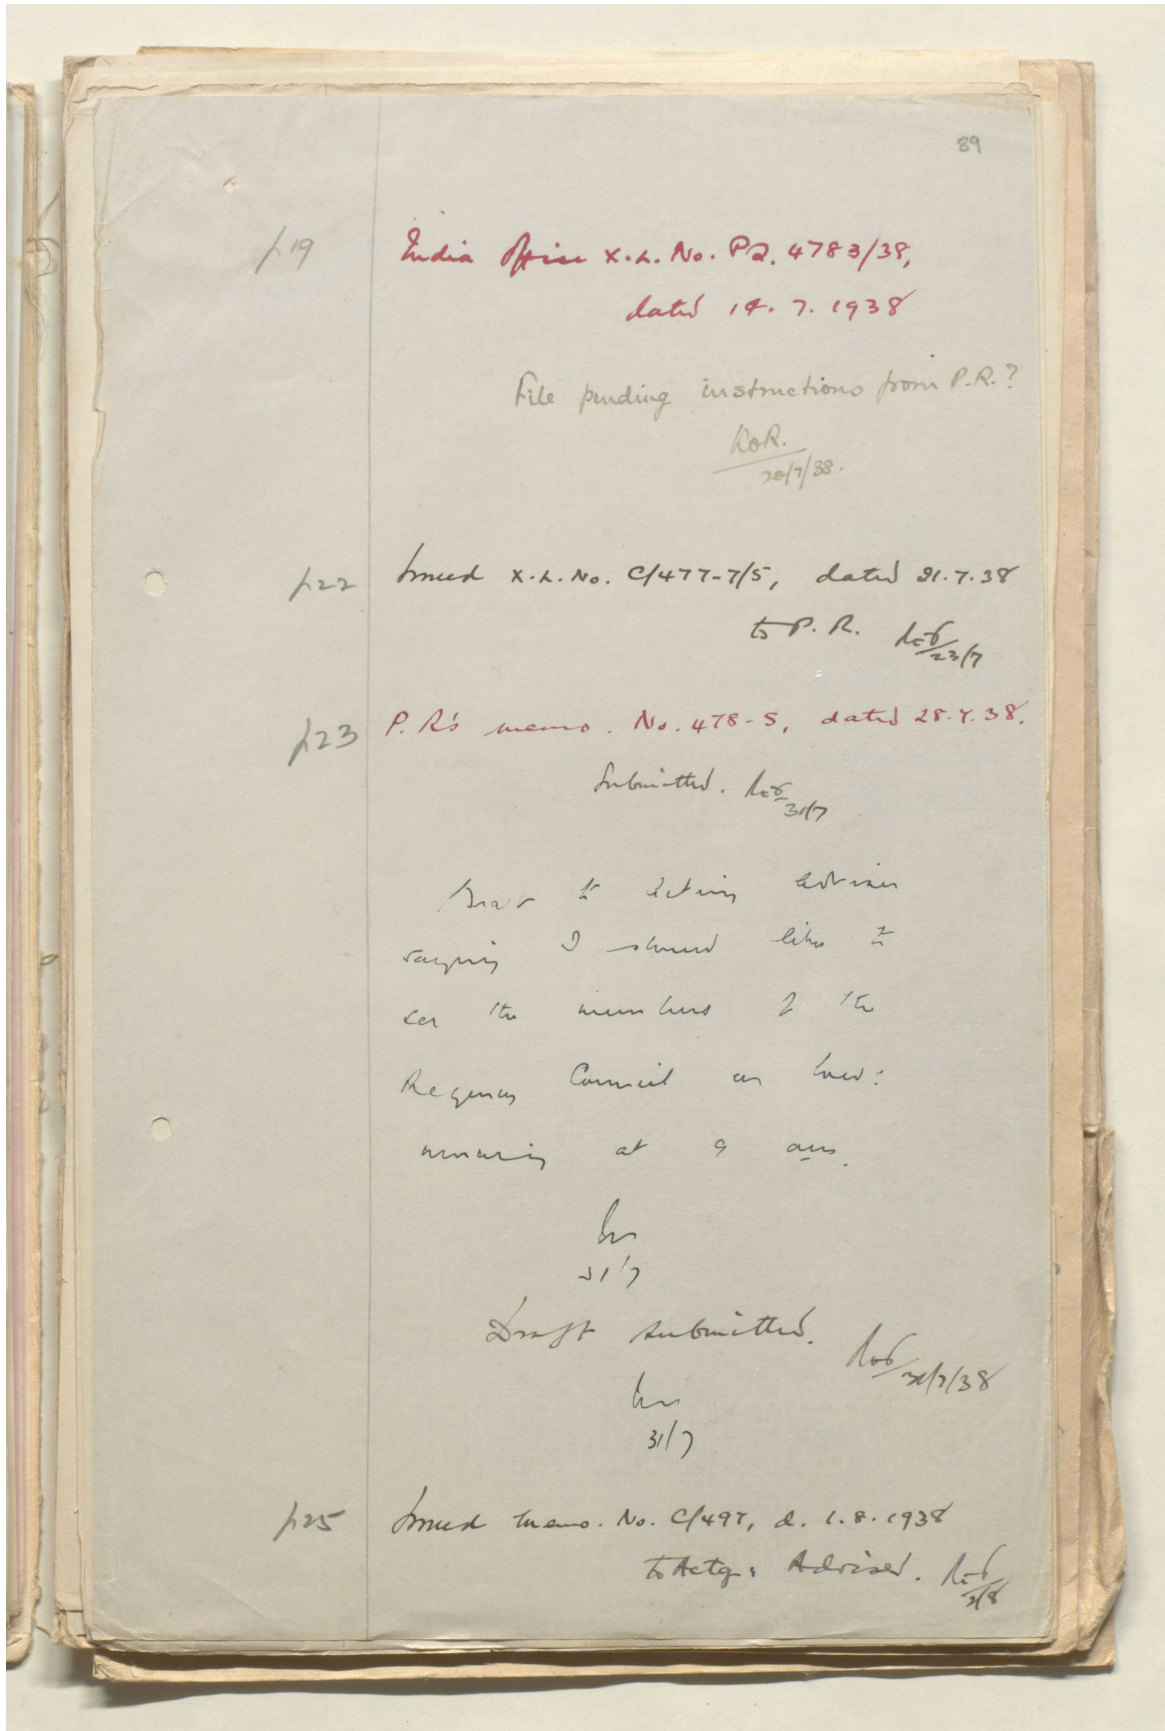 89
p19
India Office X.L. No. PZ. 4783/38,
dated 14. 7. 1938
File pending instructions from P.R.?
28/7/38.
p22
Issued X.L. No. C/477-7/5, dated 21.7.38
to P.R.
23/7
p23
P.R's memo. No. 478-S, dated 28.7.38.
Submitted.
31/7
Draft to Acting Adviser
saying I should like to
see the members of the
Regency Council on
morning at 9 am.
31/7
Draft submitted.
31/7/38
31/7
p25
Issued memo. No. C/497, d. 1.8.1938
to Actg: Adviser.
2/8